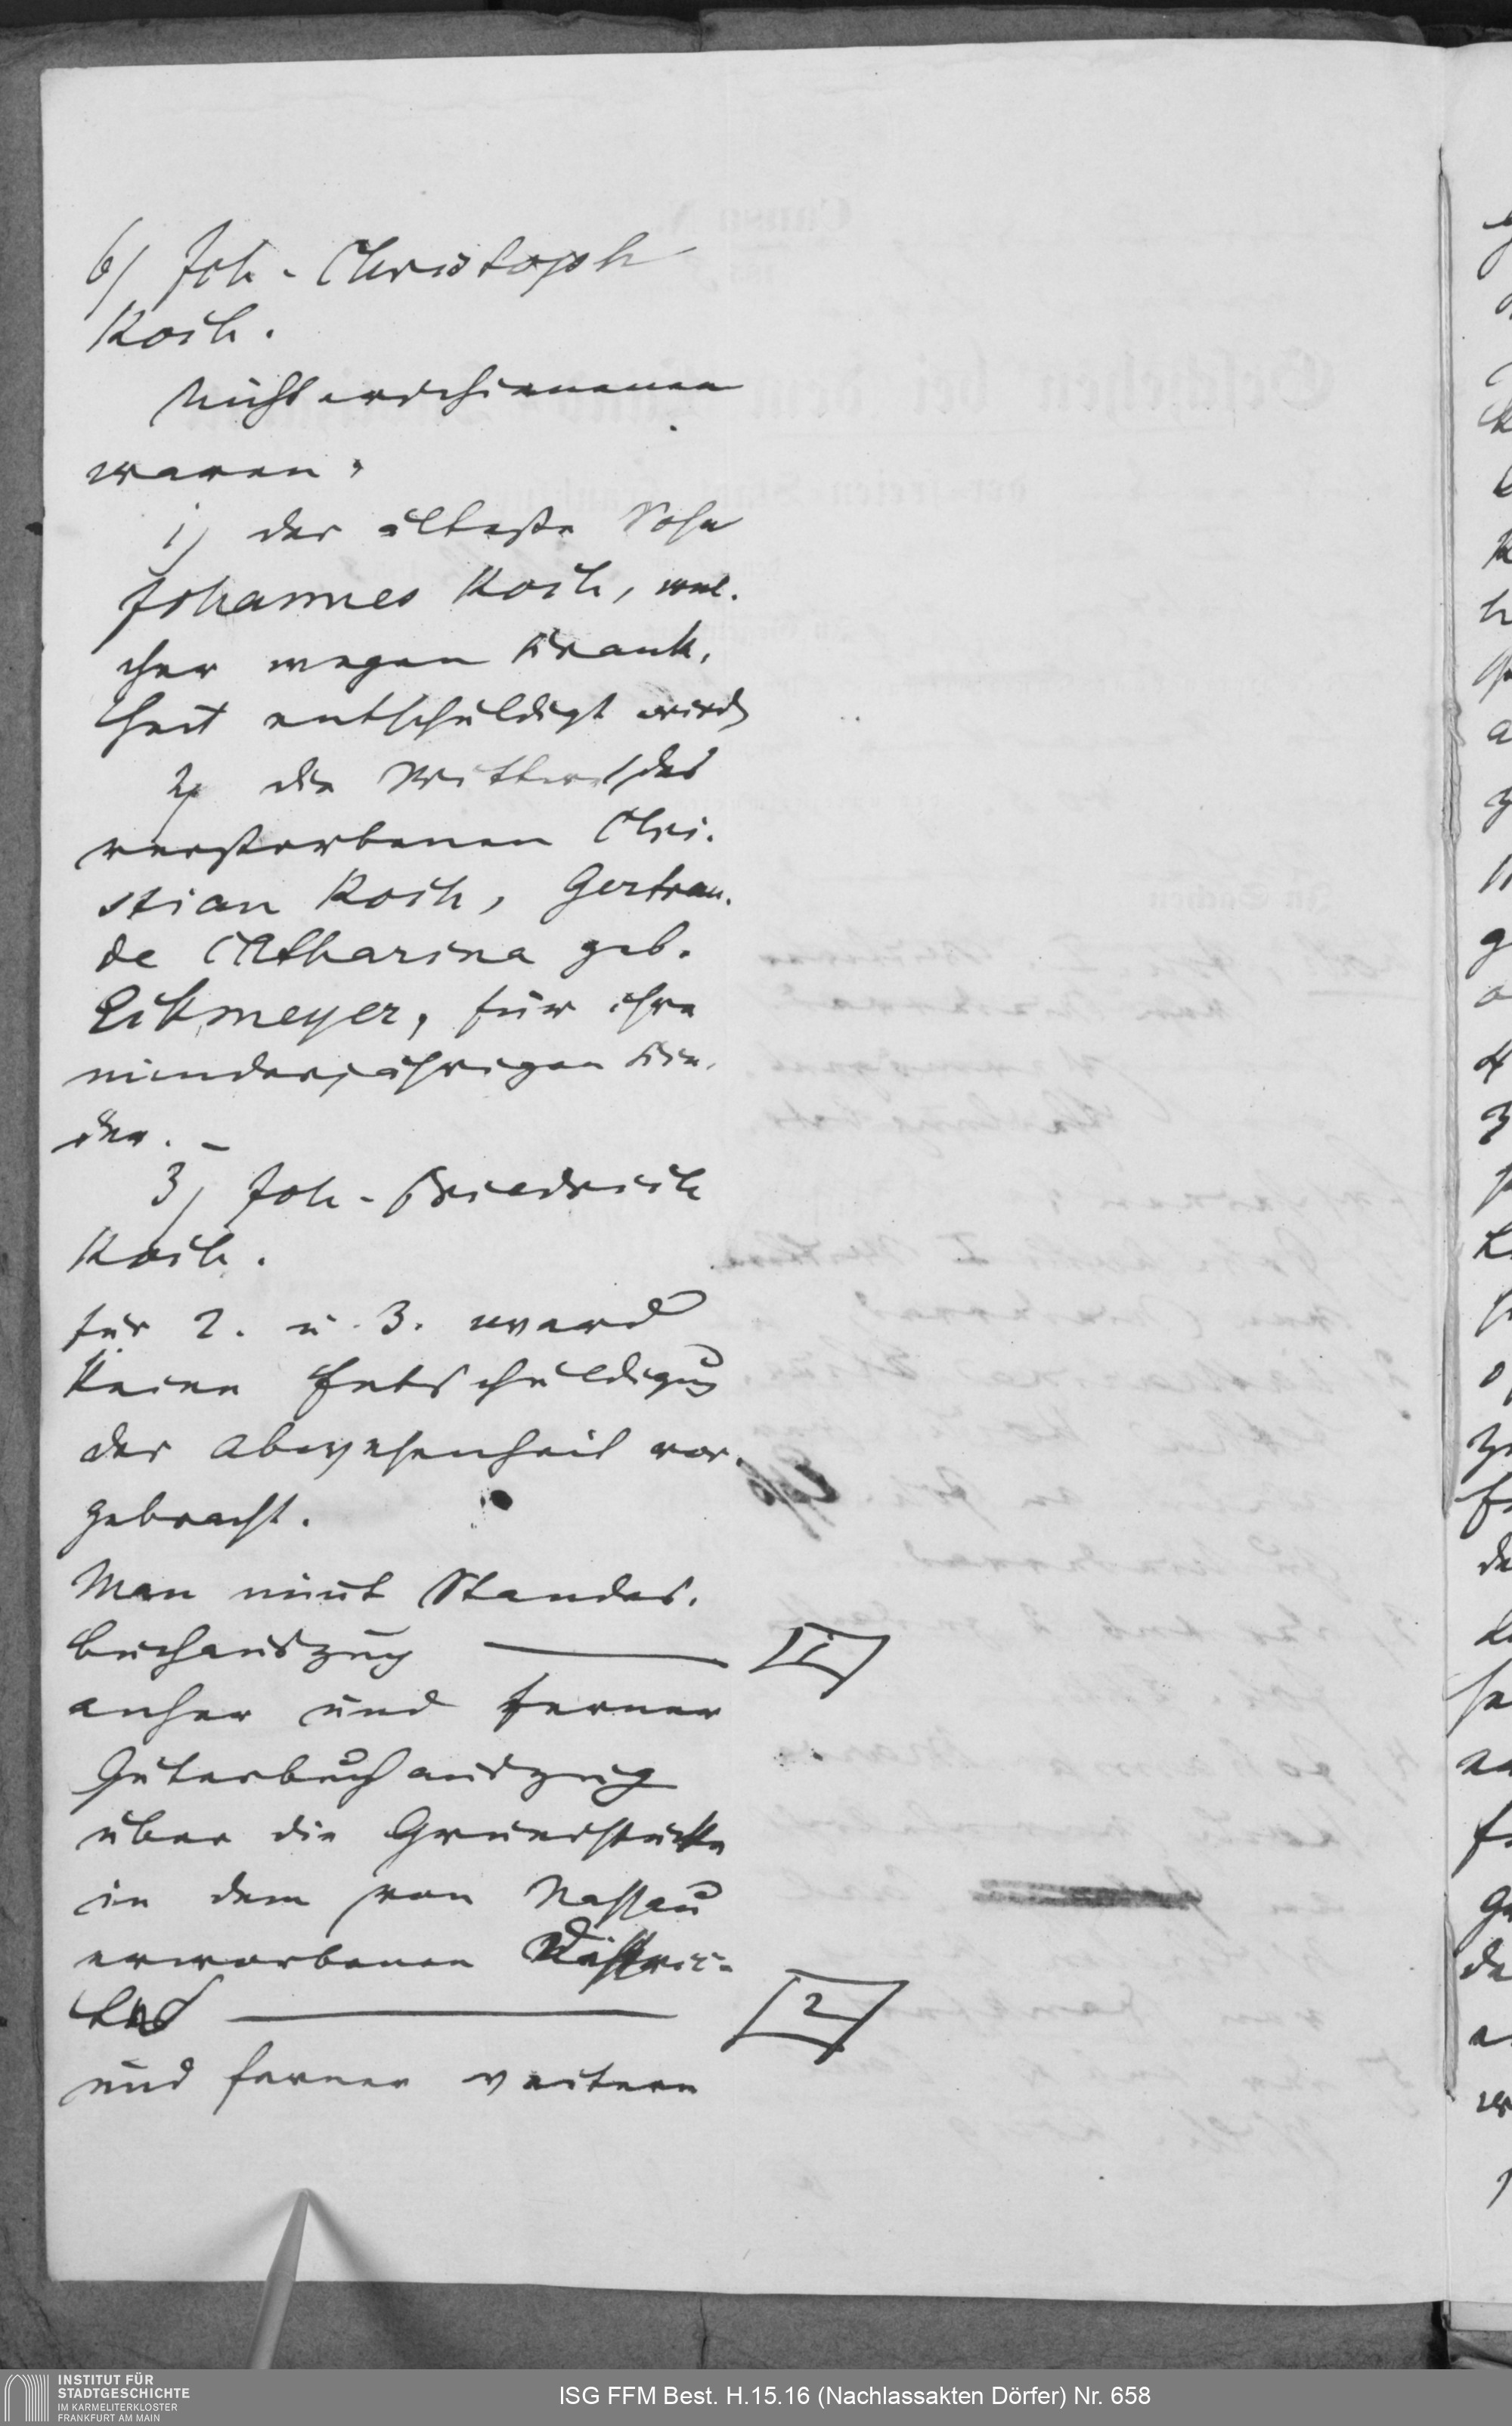 6) Joh. Christoph
Koch.
Nicht erschienenen
waren,
1) der älteste Sohn
Johannes Koch, wel-
cher wegen Krank-
heit entschuldigt wird
2) die Wittwe des
verstorbenen Chri-
stian Koch, Gertrau-
de Catharina geb.
Eikmeyer, für ihre
minderjährigen Kin-
der. –
3) Joh. Friedrich
Koch.
für 2. u. 3. ward
keine Entschuldigung
der Abwesenheit vor-
gebracht.
Man nimt Standes-
buchauszug — 1
anher und ferner
Güterbuchauszug
über die Grundstücke
in dem von Nassau
erworbenen Distric-
— 2
und ferner weitern
INSTITUT FÜR
STADTGESCHICHTE
IM KARMELITERKLOSTER
FRANKFURT AM MAIN
ISG FFM Best. H.15.16 (Nachlassakten Dörfer) Nr. 658